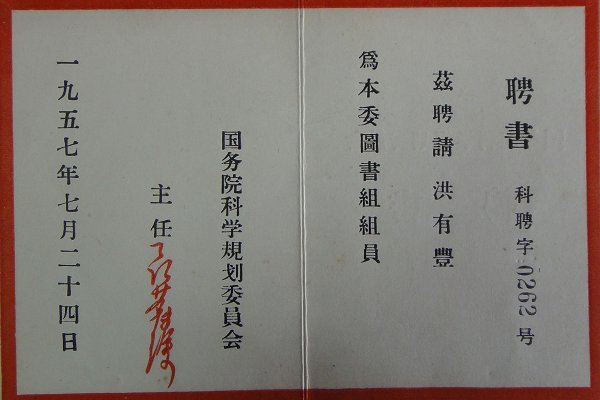 聘書
科聘字0262号
茲聘請洪有豐
爲本委圖書組組員
国务院科学規划委員会
主任
一九五七年七月二十四日